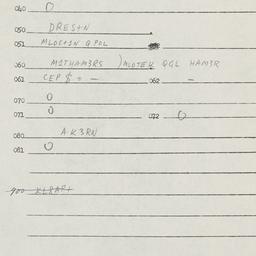 040 0
050 DRES+N
051 MLOS+1N GPOL
060 M1THAM3RS )MLOTEK QGL HAM3R
061 CEP $ = - 062 -
070 0
071 0 072 0
080 AK3RN
081 0
900 KLBAR+